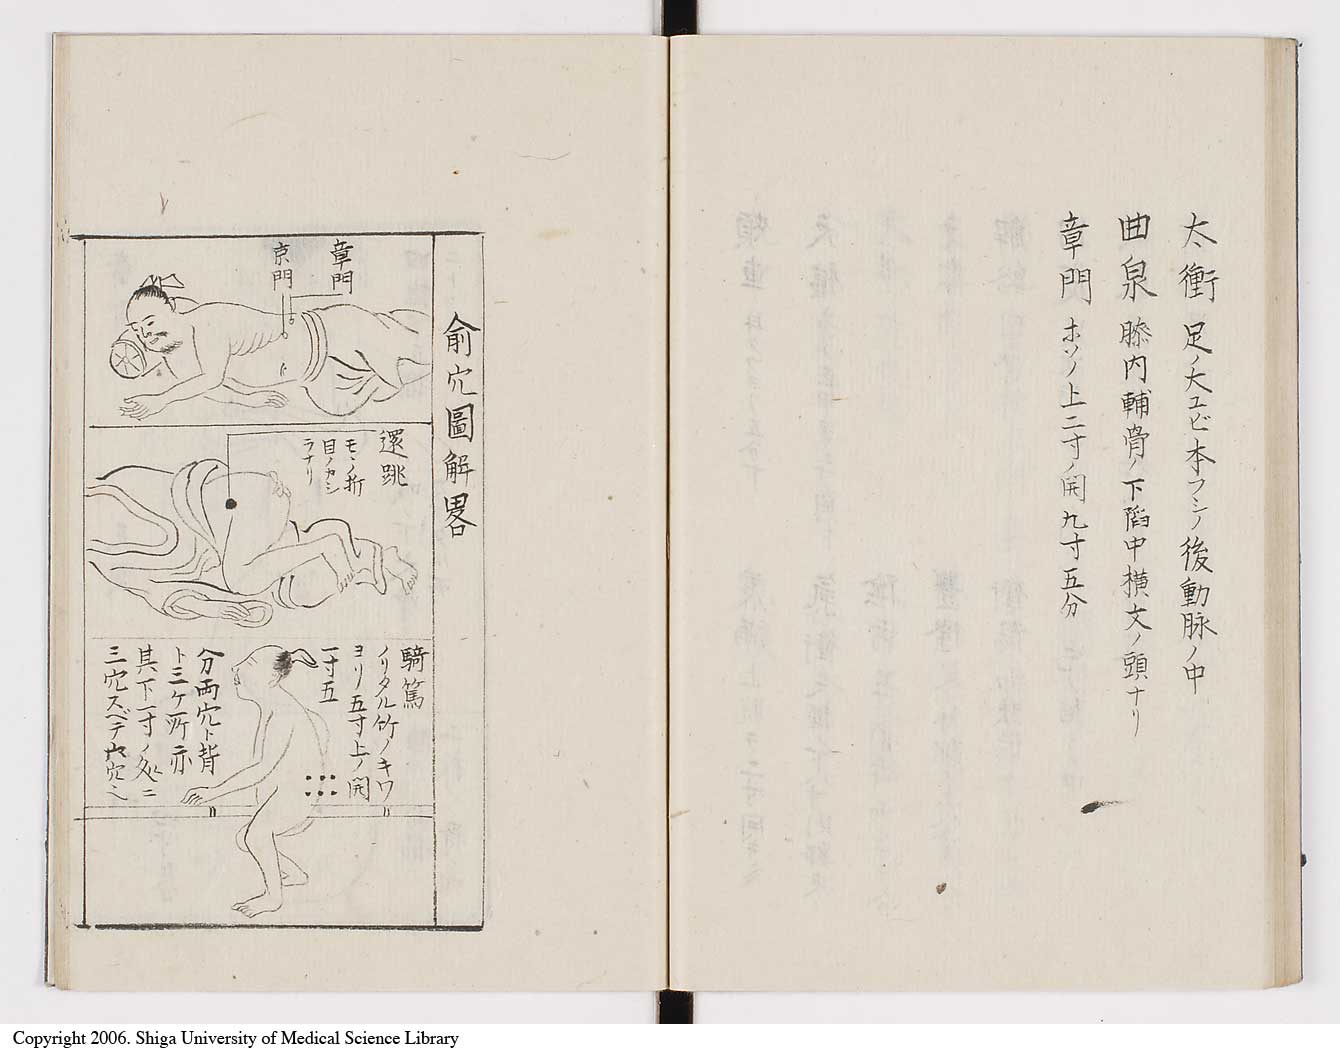 太衝 足ノ大ユビ本フシノ後動脉ノ中
曲泉 膝内輔骨ノ下䧟中横文ノ頭ナリ
章門 ホソノ上二寸ノ開九寸五分
俞穴圖解畧
章門
京門
還跳
モヽノ折
目ノカシ
ラナリ
騎篤
ノリタル竹ノキワ
ヨリ五寸上ノ開
一寸五
分両穴ト背
ト三ケ所亦
其下一寸ノ処ニ
三穴スベテ六穴ヘ
Copyright 2006. Shiga University of Medical Science Library